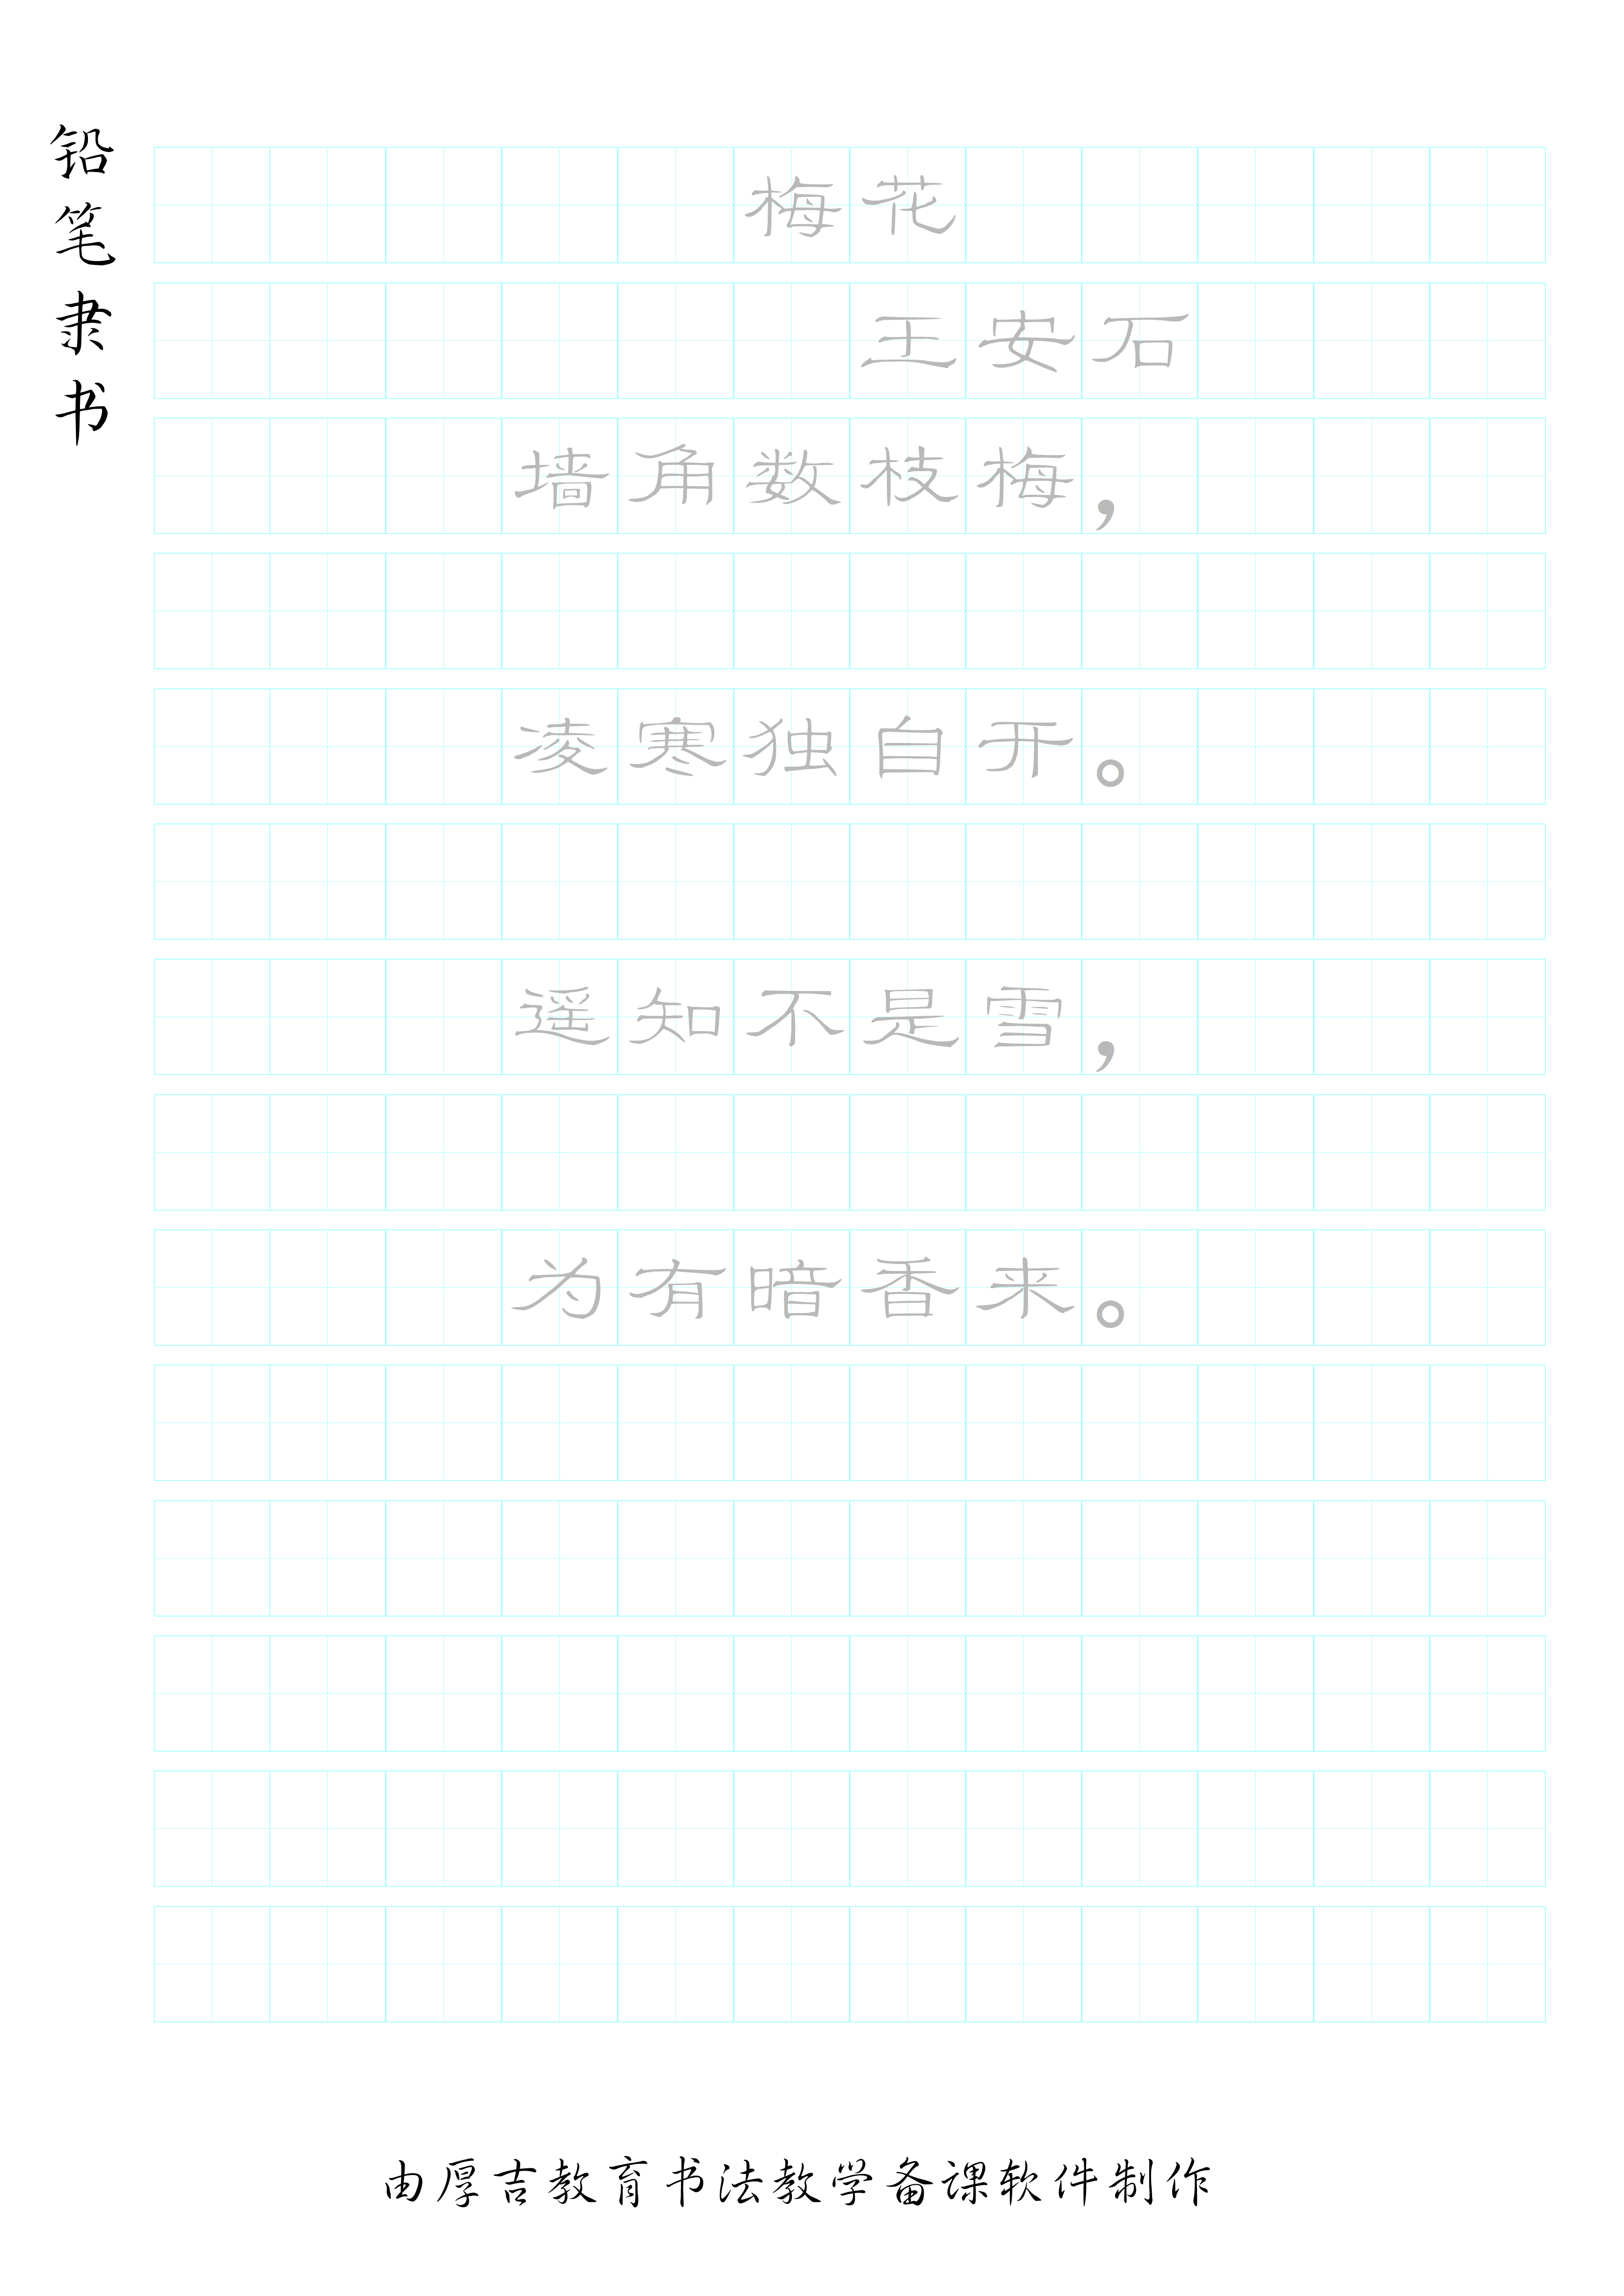 铅笔隶书
梅花
王安石
墙角数枝梅，
凌寒独自开。
遥知不是雪，
为有暗香来。
由厚吉教育书法教学备课软件制作